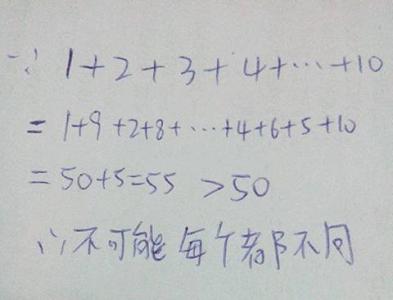 ∵ 1+2+3+4+…+10
= 1+9+2+8+…+4+6+5+10
= 50+5=55 >50
∴不可能每个都不同